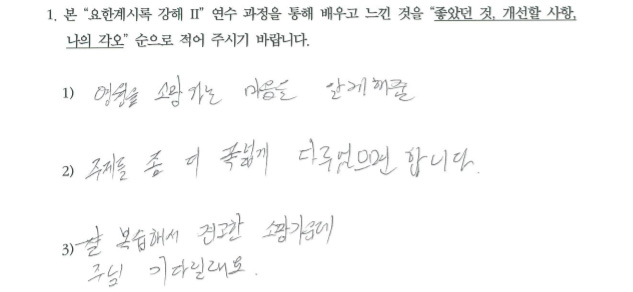 1. 본 “요한계시록 강해 II” 연수 과정을 통해 배우고 느낀 것을 “좋았던 것, 개선할 사항,
나의 각오” 순으로 적어 주시기 바랍니다.
1) 영원을 소망 가는 마음을 알게해줌
2) 주제를 좀 더 폭넓게 다루었으면 합니다.
3) 잘 복습해서 견고한 소망가운데
주님 기다릴래요.